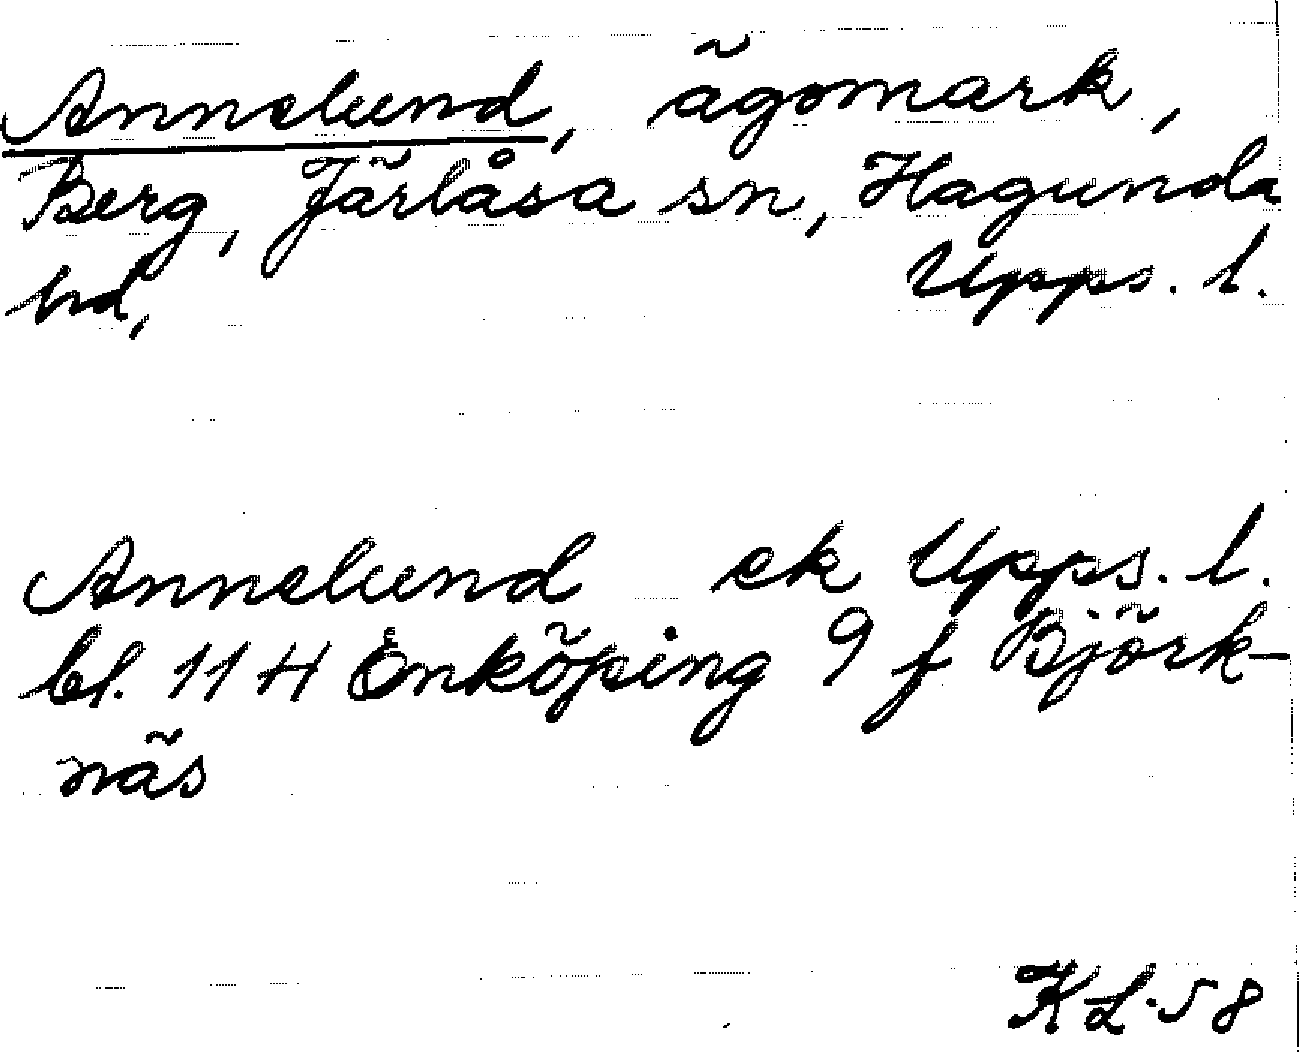 Annelund, ägomark,
Berg, Järlåsa sn, Hagunda
hd, Upps. l.
Annelund ek Upps. l.
bl. 11 H Enköping 9 f Björk-
näs
K L-58